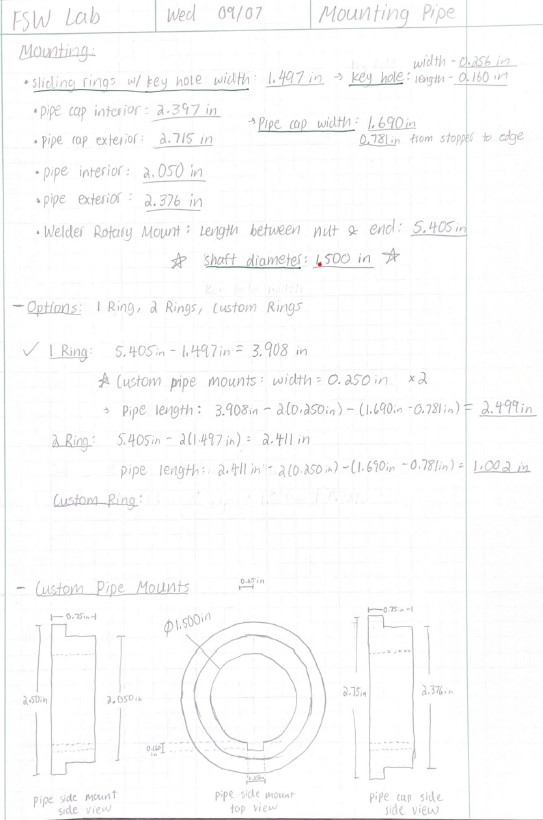 FSW Lab | Wed 09/07 | Mounting Pipe
Mounting:
• sliding rings w/ key hole width: 1.497 in → key hole: width - 0.256 in
length - 0.160 in
• pipe cap interior: 2.397 in
→ Pipe cap width: 1.690in
• pipe cap exterior: 2.715 in
0.781in from stopper to edge
• pipe interior: 2.050 in
• pipe exterior: 2.376 in
• Welder Rotary Mount: length between nut & end: 5.405in
☆ shaft diameter: 1.500 in ☆
- Options: 1 Ring, 2 Rings, Custom Rings
✓ 1 Ring: 5.405in - 1.497in = 3.908 in
☆ Custom pipe mounts: width = 0.250 in ×2
→ Pipe length: 3.908in - 2(0.250in) - (1.690in - 0.781in) = 2.499in
2 Ring: 5.405in - 2(1.497in) = 2.411in
pipe length: 2.411in - 2(0.250in) - (1.690in - 0.781in) = 1.002 in
Custom Ring:
- Custom Pipe Mounts
0.75in
2.50in
2.050in
pipe side mount
side view
Ø1.500in
0.160
in
pipe side mount
top view
0.75in
2.75in
2.376in
pipe cap side
side view